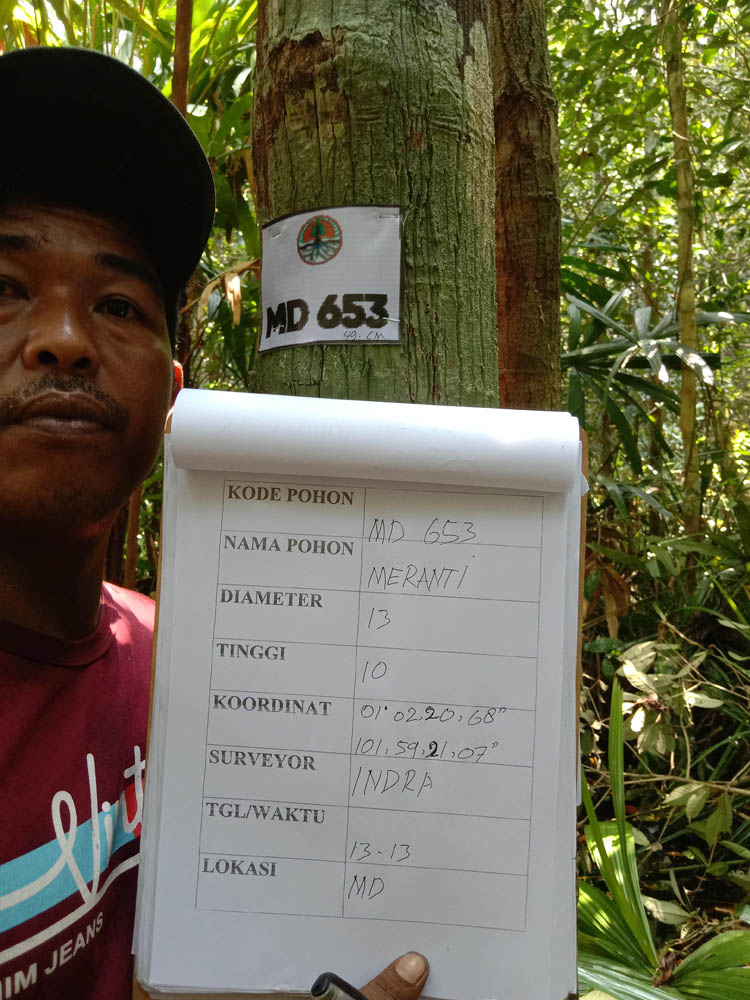 MD 653
49. CM
KODE POHON MD 653
NAMA POHON MERANTI
DIAMETER 13
TINGGI 10
KOORDINAT 01° 02, 20, 68"
101, 59, 21, 07"
SURVEYOR INDRA
TGL/WAKTU 13-13
LOKASI MD
JEANS